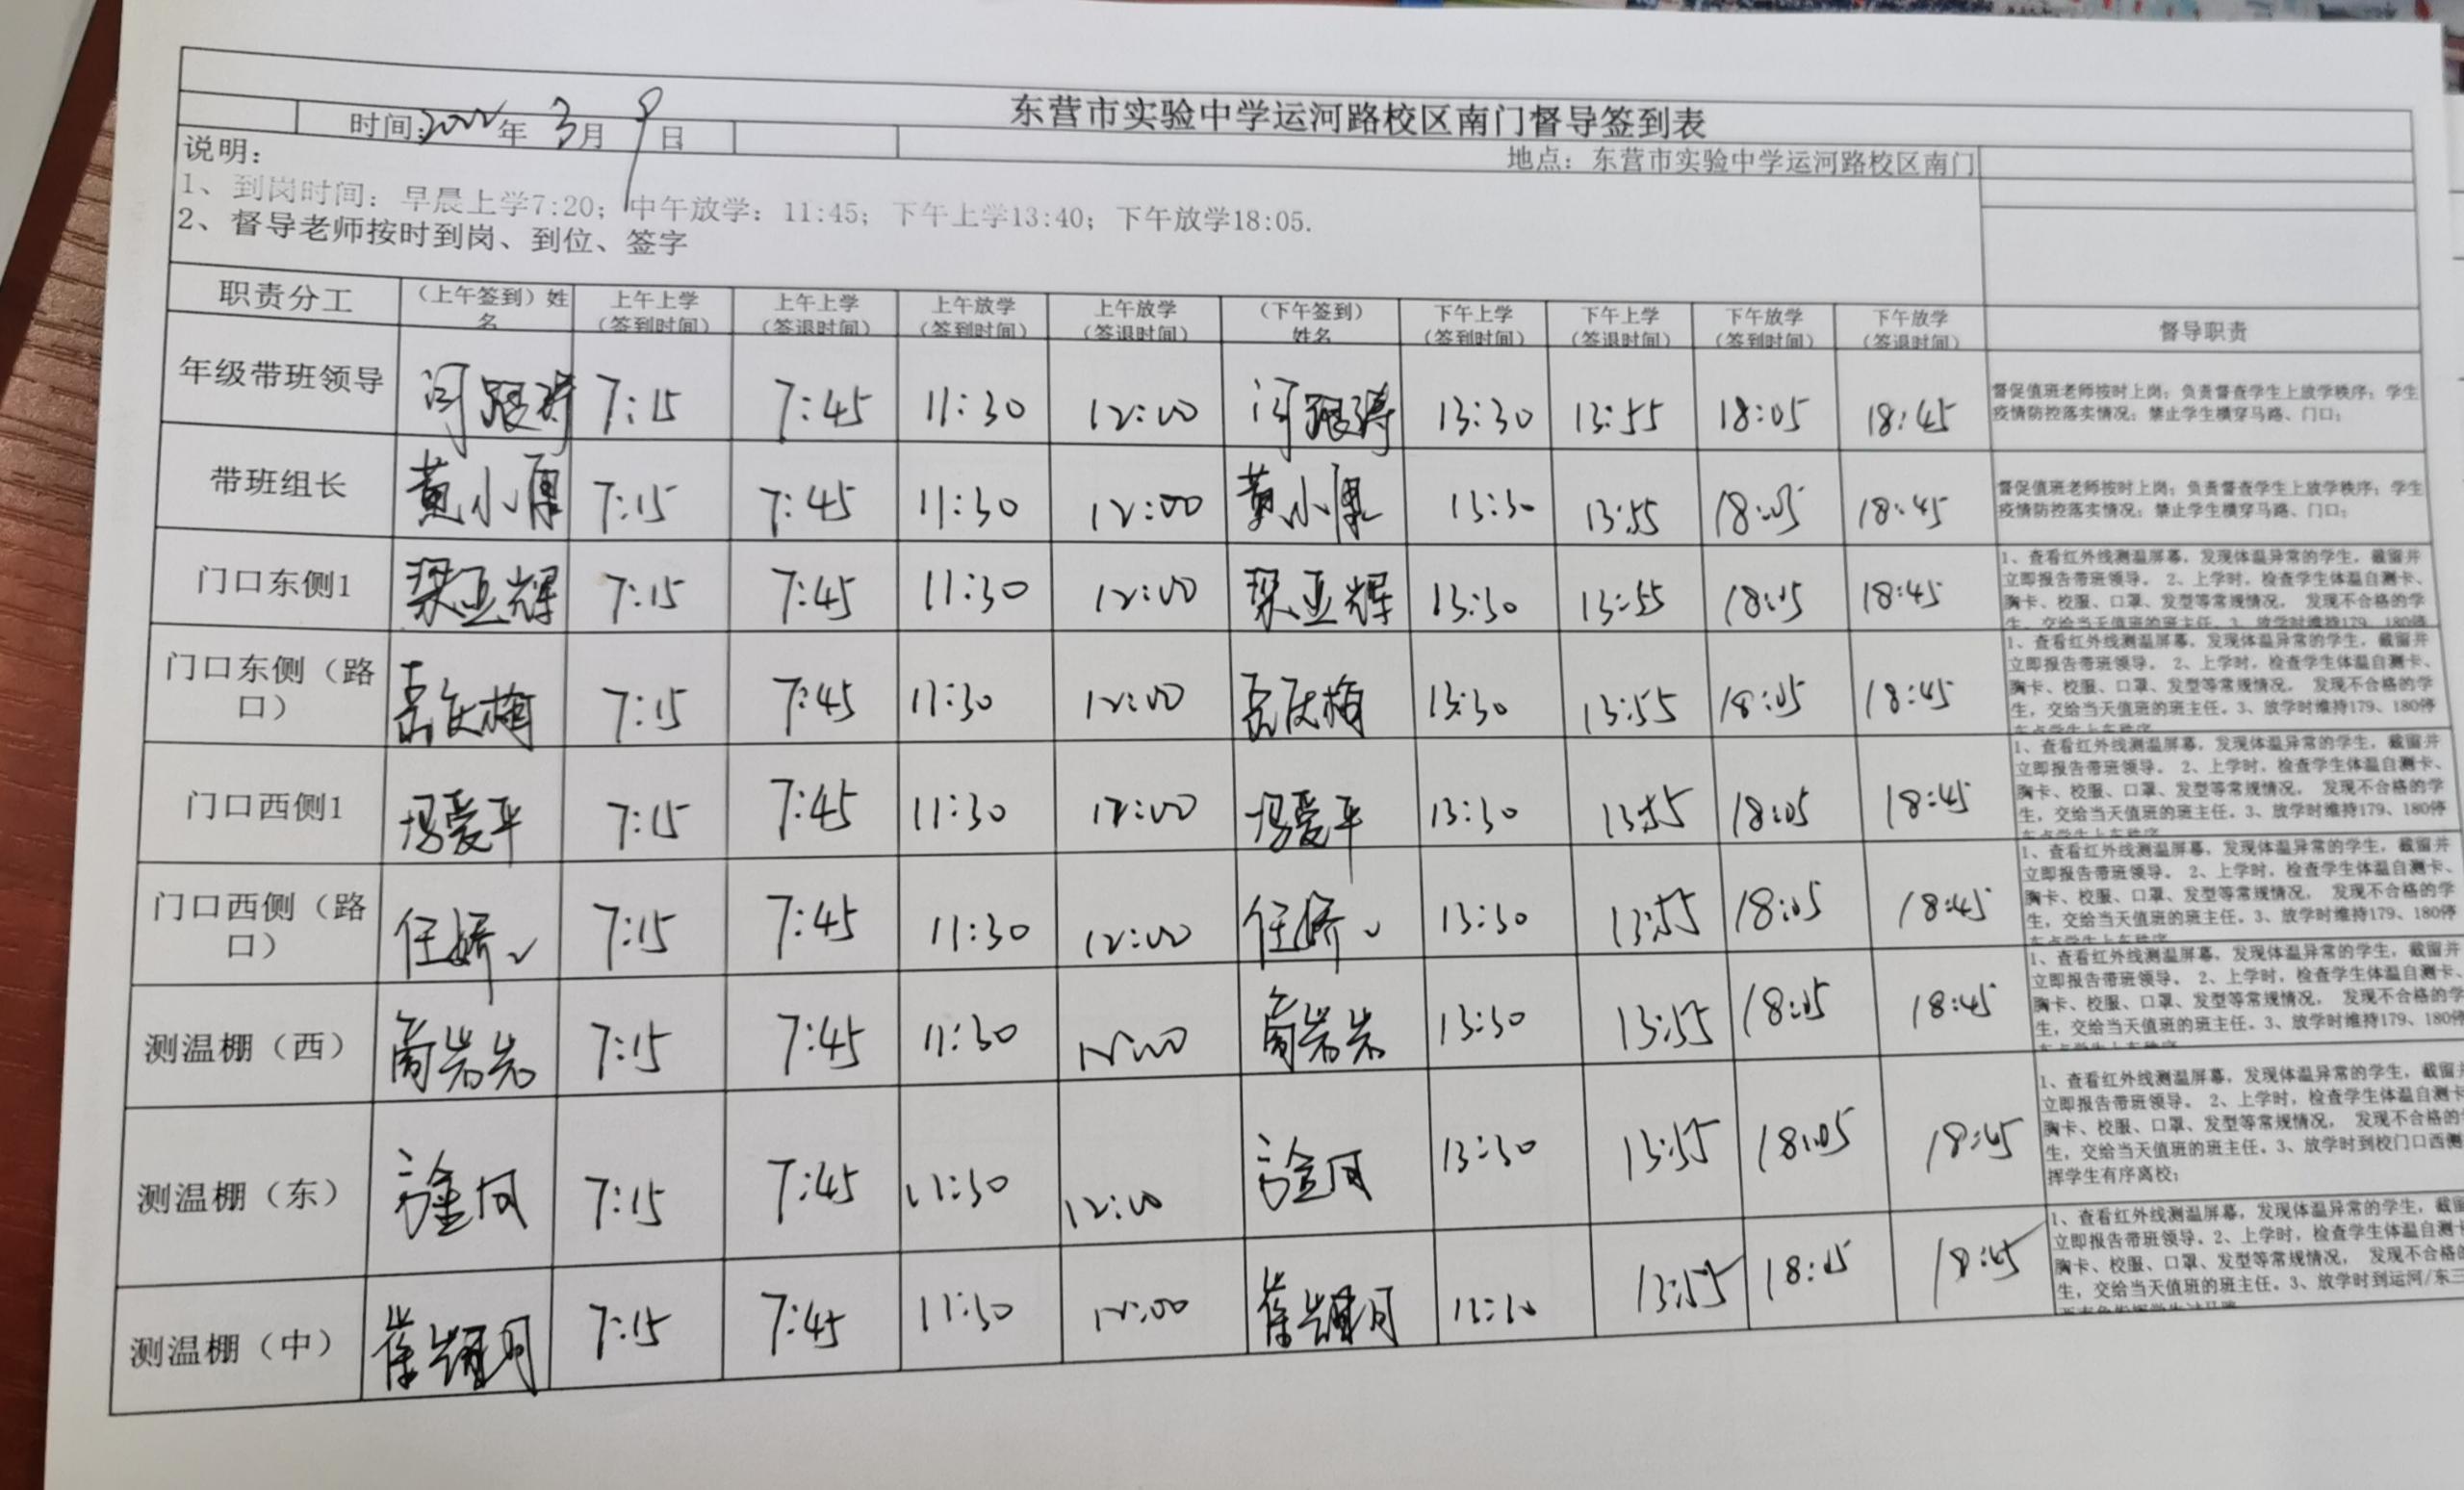 东营市实验中学运河路校区南门督导签到表
时间:2022年 3月 9日
地点：东营市实验中学运河路校区南门
说明：
1、到岗时间：早晨上学7:20；中午放学：11:45；下午上学13:40；下午放学18:05.
2、督导老师按时到岗、到位、签字
职责分工 （上午签到）姓名 上午上学（签到时间） 上午上学（签退时间） 上午放学（签到时间） 上午放学（签退时间） （下午签到）姓名 下午上学（签到时间） 下午上学（签退时间） 下午放学（签到时间） 下午放学（签退时间） 督导职责
年级带班领导 7:15 7:45 11:30 12:00 13:30 13:55 18:05 18:45
督促值班老师按时上岗；负责督查学生上放学秩序；学生
疫情防控落实情况；禁止学生横穿马路、门口；
带班组长 7:15 7:45 11:30 12:00 13:30 13:55 18:05 18:45
督促值班老师按时上岗；负责督查学生上放学秩序；学生
疫情防控落实情况；禁止学生横穿马路、门口；
门口东侧1 梁亚辉 7:15 7:45 11:30 12:00 梁亚辉 13:30 13:55 18:05 18:45
1、查看红外线测温屏幕，发现体温异常的学生，截留并
立即报告带班领导。 2、上学时，检查学生体温自测卡、
胸卡、校服、口罩、发型等常规情况， 发现不合格的学
生，交给当天值班的班主任。3、放学时维持179、180停
门口东侧（路口） 7:15 7:45 11:30 12:00 13:30 13:55 18:05 18:45
1、查看红外线测温屏幕，发现体温异常的学生，截留并
立即报告带班领导。 2、上学时，检查学生体温自测卡、
胸卡、校服、口罩、发型等常规情况， 发现不合格的学
生，交给当天值班的班主任。3、放学时维持179、180停
车点学生上车秩序
门口西侧1 冯爱平 7:15 7:45 11:30 12:00 冯爱平 13:30 13:55 18:05 18:45
1、查看红外线测温屏幕，发现体温异常的学生，截留并
立即报告带班领导。 2、上学时，检查学生体温自测卡、
胸卡、校服、口罩、发型等常规情况， 发现不合格的学
生，交给当天值班的班主任。3、放学时维持179、180停
车点学生上车秩序
门口西侧（路口） 任娇娇 7:15 7:45 11:30 12:00 任娇娇 13:30 13:55 18:05 18:45
1、查看红外线测温屏幕，发现体温异常的学生，截留并
立即报告带班领导。 2、上学时，检查学生体温自测卡、
胸卡、校服、口罩、发型等常规情况， 发现不合格的学
生，交给当天值班的班主任。3、放学时维持179、180停
车点学生上车秩序
测温棚（西） 7:15 7:45 11:30 12:00 13:30 13:55 18:05 18:45
1、查看红外线测温屏幕，发现体温异常的学生，截留并
立即报告带班领导。 2、上学时，检查学生体温自测卡、
胸卡、校服、口罩、发型等常规情况， 发现不合格的学
生，交给当天值班的班主任。3、放学时维持179、180停
车点学生上车秩序
测温棚（东） 7:15 7:45 11:30 12:00 13:30 13:55 18:05 18:45
1、查看红外线测温屏幕，发现体温异常的学生，截留
立即报告带班领导。 2、上学时，检查学生体温自测卡
胸卡、校服、口罩、发型等常规情况， 发现不合格的
生，交给当天值班的班主任。3、放学时到校门口西侧
挥学生有序离校；
测温棚（中） 7:15 7:45 11:30 12:00 13:30 13:55 18:05 18:45
1、查看红外线测温屏幕，发现体温异常的学生，截留
立即报告带班领导。2、上学时，检查学生体温自测
胸卡、校服、口罩、发型等常规情况， 发现不合格
生，交给当天值班的班主任。3、放学时到运河/东三